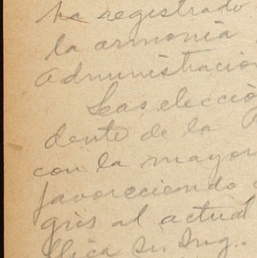 ha registrado
la armonía
administración
Las eleccio
dente de la
con la mayor
favoreciendo
gris al actual